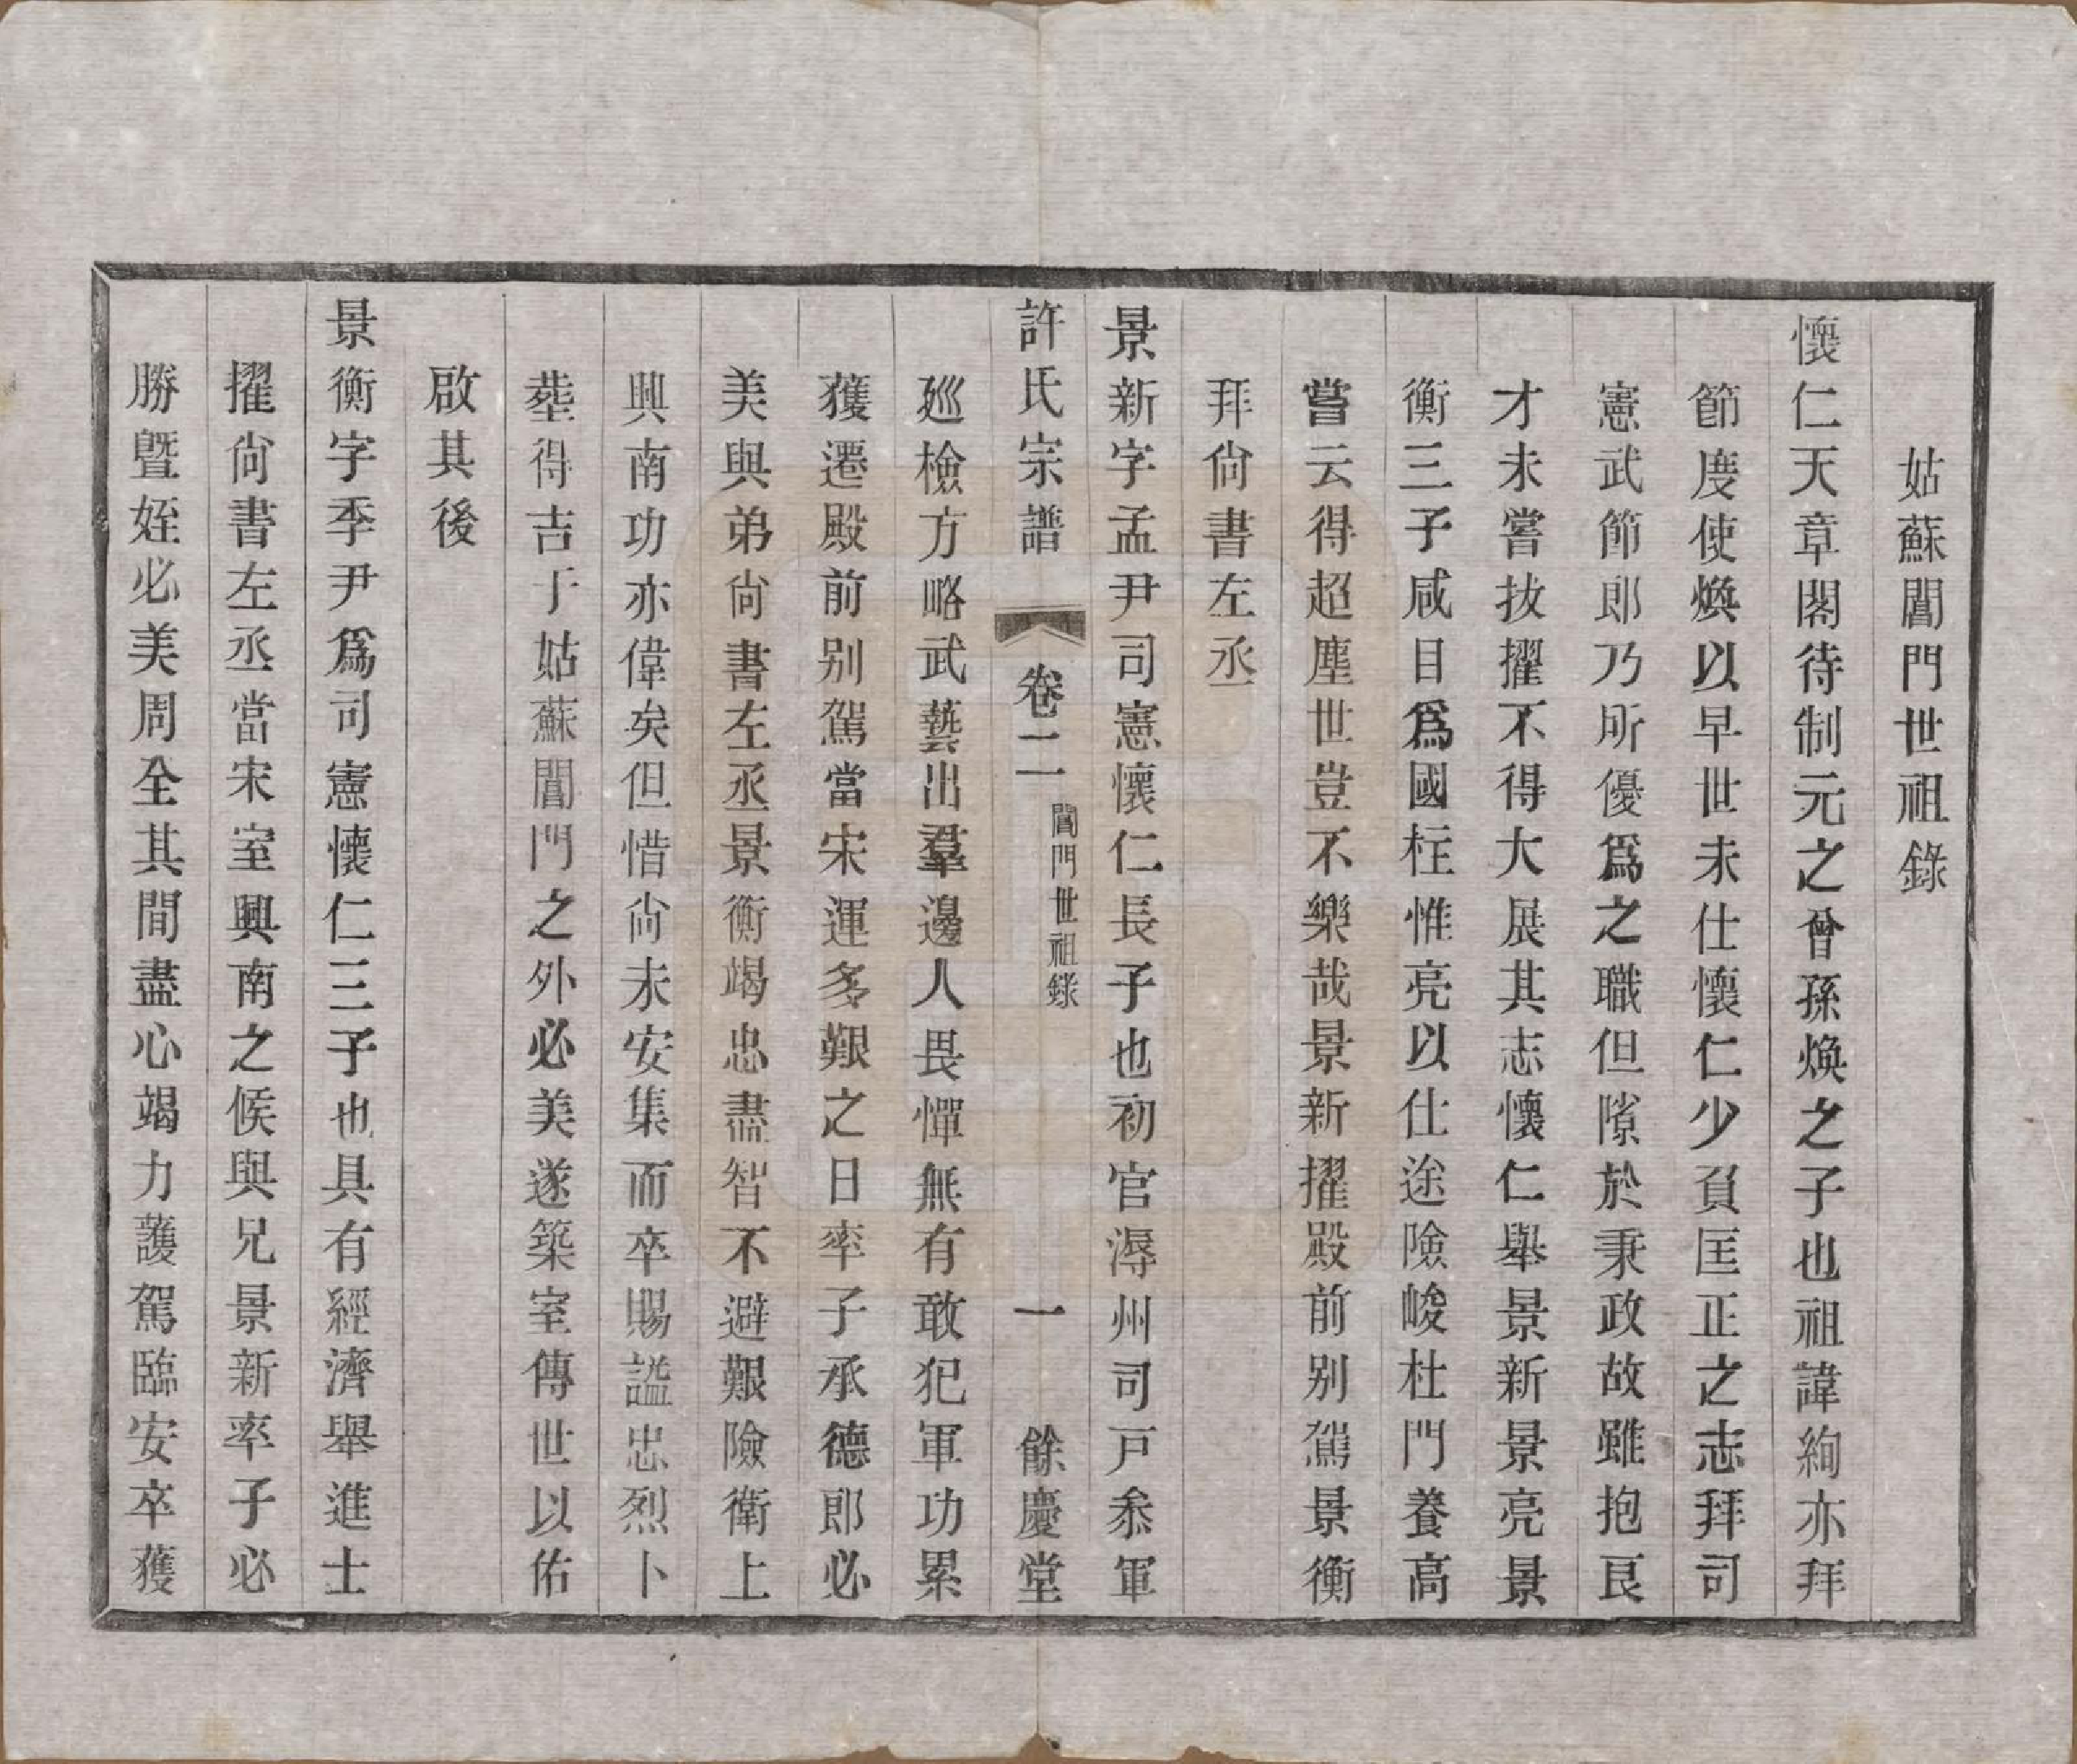 姑蘇閶門世祖錄
懷仁天章閣待制元之曾孫煥之子也祖諱絢亦拜
節度使煥以早世未仕懷仁少負匡正之志拜司
憲武節郎乃所優爲之職但隙於秉政故雖抱艮
才未嘗拔擢不得大展其志懷仁舉景新景亮景
衡三子咸目爲國柱惟亮以仕途險峻杜門養高
嘗云得超塵世豈不樂哉景新擢殿前别駕景衡
拜尙書左丞
景新字孟尹司憲懷仁長子也初官潯州司戸叅軍
許氏宗譜 卷二 閶門世祖錄 一 餘慶堂
廵檢方略武藝出羣邊人畏憚無有敢犯軍功累
獲遷殿前别駕當宋運多艱之日率子承德郎必
美與弟尙書左丞景衡竭忠盡智不避艱險衛上
興南功亦偉矣但惜尙未安集而卒賜諡忠烈卜
塟得吉于姑蘇閶門之外必美遂築室傳世以佑
啟其後
景衡字季尹爲司憲懷仁三子也具有經濟舉進士
擢尙書左丞當宋室興南之候與兄景新率子必
勝曁姪必美周全其間盡心竭力護駕臨安卒獲